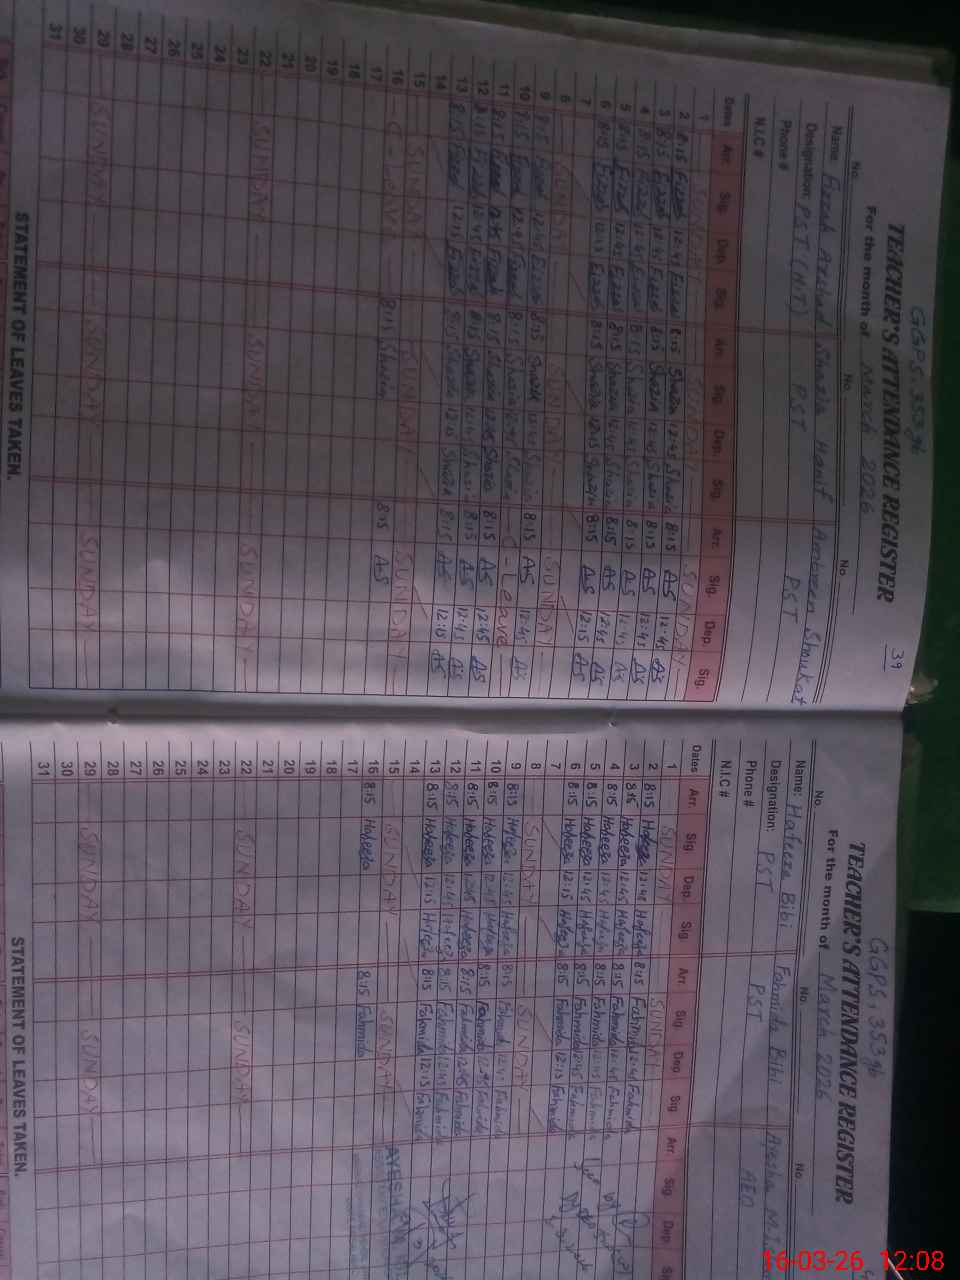 GGPS. 353 gb
39
TEACHER'S ATTENDANCE REGISTER
For the month of March 2026
No. No. No.
Name: Fizzah Arshad Shazia Hanif Ambreen Shoukat
Designation: PST (HT) PST PST
Phone #
N.I.C #
Dates Arr. Sig. Dep. Sig. Arr. Sig. Dep. Sig. Arr. Sig. Dep. Sig.
1 SUNDAY SUNDAY SUNDAY
2 8:15 Fizzah 12:45 Fizzah 8:15 Shazia 12:45 Shazia 8:15 AS 12:45 AS
3 8:15 Fizzah 12:45 Fizzah 8:15 Shazia 12:45 Shazia 8:15 AS 12:45 AS
4 8:15 Fizzah 12:45 Fizzah 8:15 Shazia 12:45 Shazia 8:15 AS 12:45 AS
5 8:15 Fizzah 12:45 Fizzah 8:15 Shazia 12:45 Shazia 8:15 AS 12:45 AS
6 8:15 Fizzah 12:15 Fizzah 8:15 Shazia 12:15 Shazia 8:15 AS 12:15 AS
7
8 SUNDAY SUNDAY SUNDAY
9 8:15 Fizzah 12:45 Fizzah 8:15 Shazia 12:45 Shazia 8:15 AS 12:45 AS
10 8:15 Fizzah 12:45 Fizzah 8:15 Shazia 12:45 Shazia C-Leave
11 8:15 Fizzah 12:45 Fizzah 8:15 Shazia 12:45 Shazia 8:15 AS 12:45 AS
12 8:15 Fizzah 12:45 Fizzah 8:15 Shazia 12:45 Shazia 8:15 AS 12:45 AS
13 8:15 Fizzah 12:15 Fizzah 8:15 Shazia 12:15 Shazia 8:15 AS 12:15 AS
14
15 SUNDAY SUNDAY SUNDAY
16 C-Leave 8:15 Shazia 8:15 AS
17
18
19
20
21
22 SUNDAY SUNDAY SUNDAY
23
24
25
26
27
28
29 SUNDAY SUNDAY SUNDAY
30
31
STATEMENT OF LEAVES TAKEN.
GGPS. 353 gb
TEACHER'S ATTENDANCE REGISTER
For the month of March 2026
No. No. No.
Name: Hafeeza Bibi Fahmida Bibi Ayesha
Designation: PST PST AEO
Phone #
N.I.C #
Dates Arr. Sig Dep. Sig Arr. Sig. Dep Sig Arr. Sig. Dep
1 SUNDAY SUNDAY
2 8:15 Hafeeza 12:45 Hafeeza 8:15 Fahmida 12:45 Fahmida
3 8:15 Hafeeza 12:45 Hafeeza 8:15 Fahmida 12:45 Fahmida
4 8:15 Hafeeza 12:45 Hafeeza 8:15 Fahmida 12:45 Fahmida
5 8:15 Hafeeza 12:45 Hafeeza 8:15 Fahmida 12:45 Fahmida
6 8:15 Hafeeza 12:15 Hafeeza 8:15 Fahmida 12:15 Fahmida
7
8 SUNDAY SUNDAY
9 8:15 Hafeeza 12:45 Hafeeza 8:15 Fahmida 12:45 Fahmida
10 8:15 Hafeeza 12:45 Hafeeza 8:15 Fahmida 12:45 Fahmida
11 8:15 Hafeeza 12:45 Hafeeza 8:15 Fahmida 12:45 Fahmida
12 8:15 Hafeeza 12:45 Hafeeza 8:15 Fahmida 12:45 Fahmida
13 8:15 Hafeeza 12:15 Hafeeza 8:15 Fahmida 12:15 Fahmida
14
15 SUNDAY SUNDAY AYESHA
16 8:15 Hafeeza 8:15 Fahmida
17
18
19
20
21
22 SUNDAY SUNDAY
23
24
25
26
27
28
29 SUNDAY SUNDAY
30
31
STATEMENT OF LEAVES TAKEN.
16-03-26 12:08